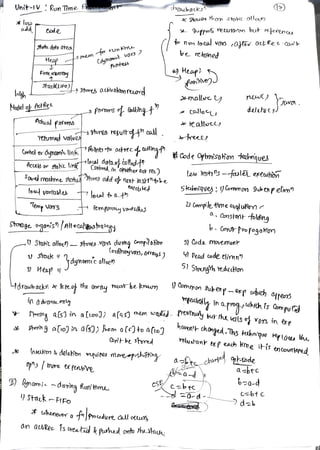 Unit-IV : Run Time
* low add
Code
static data area
Heap
Free memory
Stack
→ mem for runtime (dynamic vars) process
→ stores activation record
high
Model of ActRec
Actual params → params of calling fn
returned values → stores result of fn call
Control or Dynamic link → Points to actrec of calling fn
Access or static link → local data of called fn (stored in another act rec)
Saved machine status → stores add of next instn to be executed
local variables → local to a fn
Temp vars → temporary variables
Storage organisn / Allocation strategy
1) Static allocn → stores vars during compilation (ordinary vars, arrays)
2) Stack "
3) Heap "
} dynamic allocn
drawbacks * size of the array must be known in advance only
* Prmtg a[5] in a[100]; a[95] mem wasted
* Prmtg a[10] in a[5]; from a[5] to a[10] can't be stored
* Insertion & deletion requires more opns, shifting opns / more expensive
2) Dynamic - during Run time
1) Stack - FIFO
* whenever a fn/procedure call occurs, an actRec is created & pushed onto the stack
drawbacks
* Slower than static allocn
* Supports recursion but references to non local vars after act Rec can't be retained
2) Heap :
→ malloc
→ calloc
→ realloc
→ free
new
delete
} Java
# Code Optimisation techniques
less instns - faster execution
5 techniques : 1) Common Subexp elimn
2) Compile time evalution
a. Constant folding
b. Const propagation
3) Code movement
4) Dead code elimn
5) Strength reduction
1) Common Subexp - exp which appears repeatedly in a prog, which is computed previously but the vals of vars in exp haven't changed. This technique replaces the redundant exp each time it is encountered
a=b+c
b=a-d
c=b+c
d=a-d
CSE
changed
opt code
a=b+c
b=a-d
c=b+c
d=b